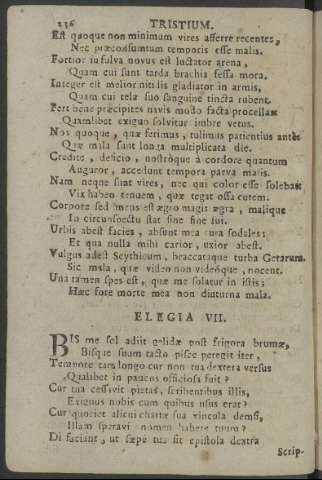 236 TRISTIUM.
Est quoque non minimum vires afferre recentes,
Nec præconsumtum temporis esse malis.
Fortior in fulva novus est luctator arena,
Quam cui sunt tarda brachia fessa mora.
Integer est melior nitidis gladiator in armis,
Quam cui tela suo sanguine tincta rubent.
Fert bene præcipites navis modo facta procellas
Quamlibet exiguo solvitur imbre vetus.
Nos quoque, quæ ferimus, tulimus patientius ante
Quæ mala sunt longa multiplicata die.
Credite, deficio, nostroque à corpore quantum
Auguror, accedunt tempora parva malis.
Nam neque sunt vires, nec qui color esse solebat
Vix habeo tenuem, quæ tegat ossa cutem.
Corpore sed mens est ægro magis ægra, malique
In circumspectu stat sine fine sui.
Urbis abest facies, absunt mea cura sodales;
Et qua nulla mihi carior, uxor abest.
Vulgus adest Scythicum, braccataque turba Getarum
Sic mala, quæ video non videoque, nocent.
Una tamen spes est, quæ me solatur in istis;
Hæc fore morte mea non diuturna mala.
ELEGIA VII.
BIS me sol adiit gelidæ post frigora brumæ,
Bisque suum tacto pisce peregit iter,
Tempore tam longo cur non tua dextera versus
Quamlibet in paucos officiosa fuit?
Cur tua cessavit pietas, scribentibus illis,
Exiguus nobis cum quibus usus erat?
Cur quoties alicui chartæ sua vincula demsi,
Illam speravi nomen habere tuum?
Di faciant, ut sæpe tua sit epistola dextra
Scrip-